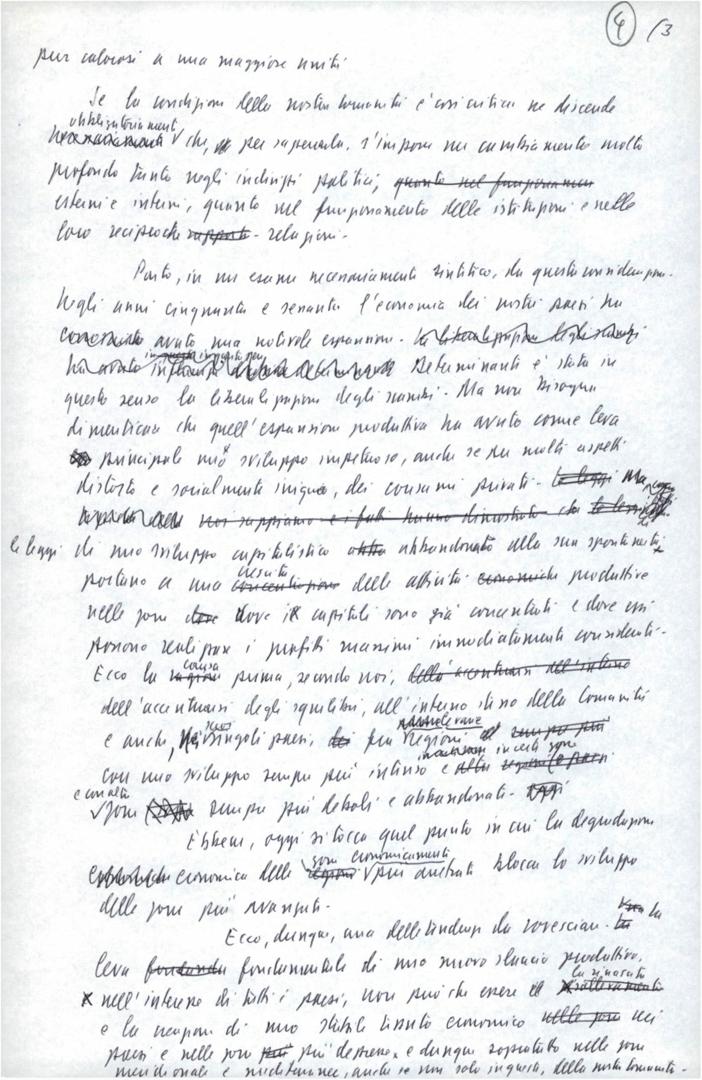 4 /3
pur calorosi a una maggiore unità
Se la condizione della nostra Comunità è così critica ne discende
obbligatoriamente
che, per superarla, s'impone un cambiamento molto
profondo tanto negli indirizzi politici, quanto nel funzionamen
esterni e interni, quanto nel funzionamento delle istituzioni e nelle
loro reciproche rapporti - relazioni -
Parto, in un esame necessariamente sintetico, da questa considerazione.
Negli anni cinquanta e sessanta l'economia dei nostri paesi ha
conosciuto avuto una notevole espansione - La liberalizzazione degli scambi
ha avuto Determinante è stata in
questo senso la liberalizzazione degli scambi - Ma non bisogna
dimenticare che quell'espansione produttiva ha avuto come leva
principale uno sviluppo impetuoso, anche se per molti aspetti
distorto e socialmente iniquo, dei consumi privati - Le leggi Ma
noi sappiamo e i fatti hanno dimostrato che le leggi
le leggi di uno sviluppo capitalistico abbandonato alla sua spontaneità
crescita
portano a una concentrazione delle attività economiche produttive
nelle zone dove dove i capitali sono già concentrati e dove essi
possono realizzare i profitti massimi immediatamente considerati -
causa
Ecco la ragione prima, secondo noi, dell'accentuarsi all'interno
dell'accentuarsi degli squilibri, all'interno stesso della Comunità
e anche, singoli paesi, fra regioni sempre più
in certe zone
con uno sviluppo sempre più intenso e altre regioni e paesi
e con altre
zone sempre più deboli e abbandonate -
Ebbene, oggi si tocca quel punto in cui la degradazione
zone economicamente
economica delle regioni più arretrate blocca lo sviluppo
delle zone più avanzate -
Ecco, dunque, una delle tendenze da rovesciare - la
leva fondamentale di uno nuovo slancio produttivo,
la rinascita
nell'interesse di tutti i paesi, non può che essere il sollevamento
e la creazione di uno stabile tessuto economico nelle zone nei
paesi e nelle zone più più depresse e dunque soprattutto nelle zone
meridionale e mediterranee, anche se non solo in queste, della nostra Comunità -